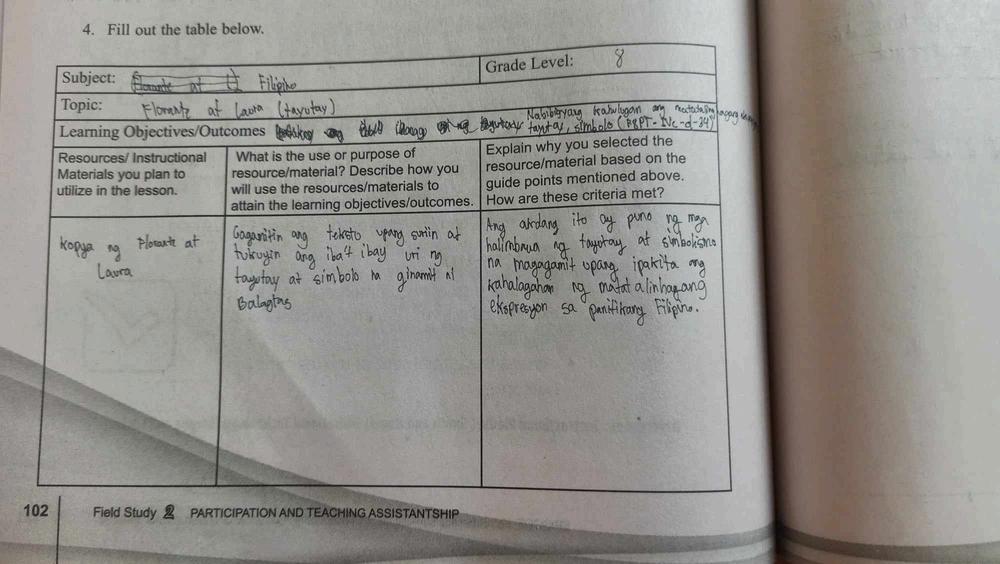 4. Fill out the table below.
Subject: Florante at L Filipino
Grade Level: 8
Topic: Florante at Laura (tayutay)
Learning Objectives/Outcomes
Nabibigyang kahulugan ang matatalinghagang
tayutay, simbolo (F8PT-IVc-d-34)
Resources/ Instructional
Materials you plan to
utilize in the lesson.
What is the use or purpose of
resource/material? Describe how you
will use the resources/materials to
attain the learning objectives/outcomes.
Explain why you selected the
resource/material based on the
guide points mentioned above.
How are these criteria met?
Kopya ng Florante at
Laura
Gagamitin ang teksto upang suriin at
tukuyin ang iba't ibay uri ng
tayutay at simbolo na ginamit ni
Balagtas
Ang akdang ito ay puno ng mga
halimbawa ng tayutay at simbolismo
na magagamit upang ipakita ang
kahalagahan ng matatalinhagang
ekspresyon sa panitikang Filipino.
102
Field Study 2 PARTICIPATION AND TEACHING ASSISTANTSHIP